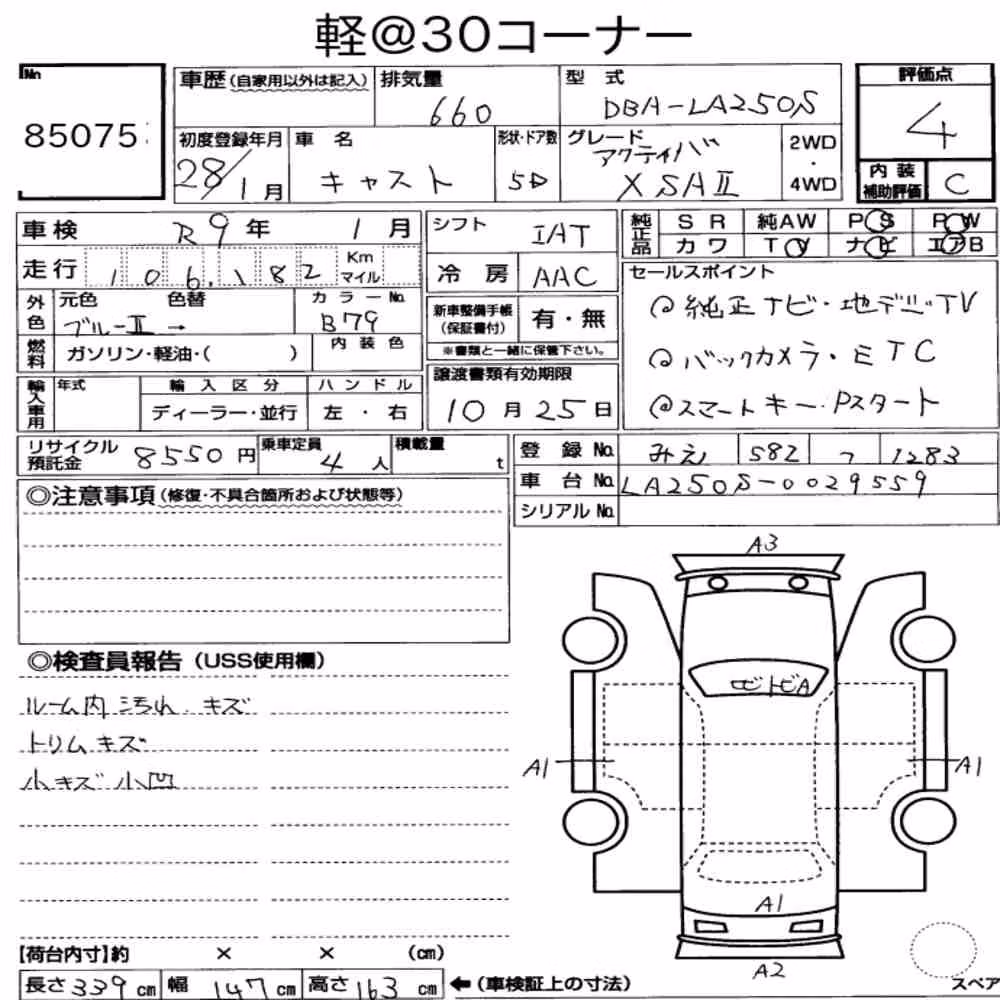 軽@30コーナー
No.
85075
車歴(自家用以外は記入)
排気量
660
型式
DBA-LA250S
評価点
4
初度登録年月
28/1月
車名
キャスト
形状・ドア数
5D
グレード
アクティバ
X SAⅡ
2WD
・
4WD
内装
補助評価
C
車検
R9年 1月
走行
106,182
Km
マイル
シフト
IAT
冷房
AAC
純正品
SR 純AW PS PW
カワ TV ナビ エアB
外色
元色 色替
ブルーⅡ→
カラーNo.
B79
新車整備手帳
(保証書付)
有・無
※書類と一緒に保管下さい。
セールスポイント
@純正ナビ・地デジTV
@バックカメラ・ETC
@スマートキー・Pスタート
燃料
ガソリン・軽油・( )
内装色
輸入車用
年式
輸入区分
ハンドル
ディーラー・並行
左・右
譲渡書類有効期限
10月25日
リサイクル
預託金
8550円
乗車定員
4人
積載量
t
登録No.
みえ 582 つ 1283
車台No.
LA250S-0029559
シリアルNo.
◎注意事項(修復・不具合箇所および状態等)
◎検査員報告(USS使用欄)
ルーム内汚れ.キズ
トリムキズ
小キズ小凹
A3
ロビトビA
A1
A1
A1
A2
【荷台内寸】約 × × (cm)
長さ339cm 幅147cm 高さ163cm
←(車検証上の寸法)
スペア